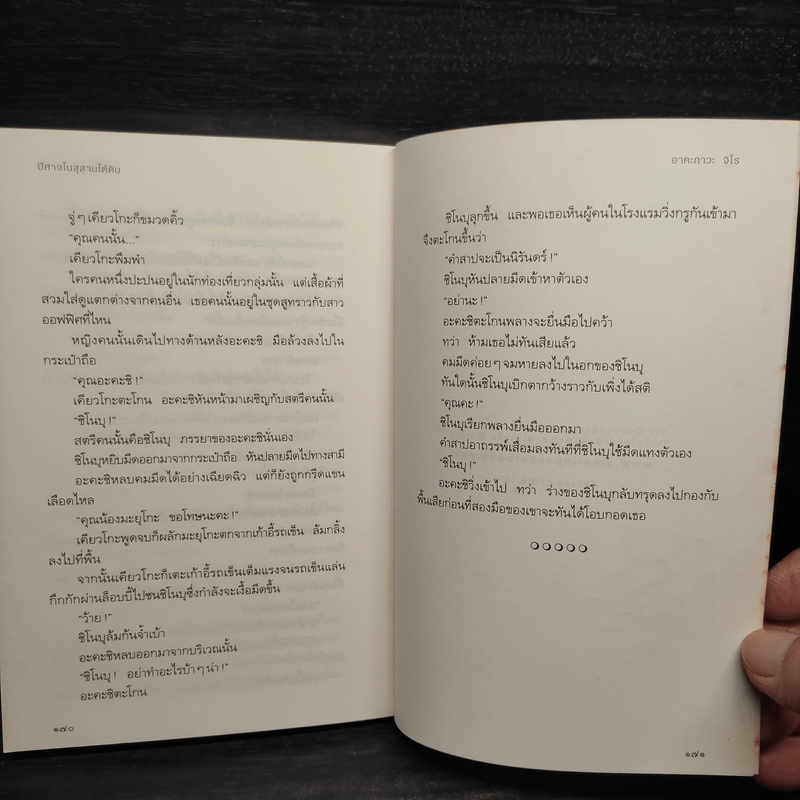 ปีศาจในสุสานใต้ดิน
จู่ ๆ เคียวโกะก็ขมวดคิ้ว
"คุณคนนั้น..."
เคียวโกะพึมพำ
ใครคนหนึ่งปะปนอยู่ในนักท่องเที่ยวกลุ่มนั้น แต่เสื้อผ้าที่
สวมใส่ดูแตกต่างจากคนอื่น เธอคนนั้นอยู่ในชุดสูทราวกับสาว
ออฟฟิศที่ไหน
หญิงคนนั้นเดินไปทางด้านหลังอะคะชิ มือล้วงลงไปใน
กระเป๋าถือ
"คุณอะคะชิ !"
เคียวโกะตะโกน อะคะชิหันหน้ามาเผชิญกับสตรีคนนั้น
"ชิโนบุ !"
สตรีคนนั้นคือชิโนบุ ภรรยาของอะคะชินั่นเอง
ชิโนบุหยิบมีดออกมาจากกระเป๋าถือ หันปลายมีดไปทางสามี
อะคะชิหลบคมมีดได้อย่างเฉียดฉิว แต่ก็ยังถูกกรีดแขน
เลือดไหล
"คุณน้องมะยุโกะ ขอโทษนะคะ !"
เคียวโกะพูดจบก็ผลักมะยุโกะตกจากเก้าอี้รถเข็น ล้มกลิ้ง
ลงไปที่พื้น
จากนั้นเคียวโกะก็เตะเก้าอี้รถเข็นเต็มแรงจนรถเข็นแล่น
กึกกักผ่านล็อบบี้ไปชนชิโนบุซึ่งกำลังจะเงื้อมีดขึ้น
"ว้าย !"
ชิโนบุล้มก้นจ้ำเบ้า
อะคะชิหลบออกมาจากบริเวณนั้น
"ชิโนบุ ! อย่าทำอะไรบ้า ๆ น่า !"
อะคะชิตะโกน
๑๗๐
อาคะกาวะ จิโร
ชิโนบุลุกขึ้น และพอเธอเห็นผู้คนในโรงแรมวิ่งกรูกันเข้ามา
จึงตะโกนขึ้นว่า
"คำสาปจะเป็นนิรันดร์ !"
ชิโนบุหันปลายมีดเข้าหาตัวเอง
"อย่านะ !"
อะคะชิตะโกนพลางจะยื่นมือไปคว้า
ทว่า ห้ามเธอไม่ทันเสียแล้ว
คมมีดค่อย ๆ จมหายลงไปในอกของชิโนบุ
ทันใดนั้นชิโนบุเบิกตากว้างราวกับเพิ่งได้สติ
"คุณคะ !"
ชิโนบุเรียกพลางยื่นมือออกมา
คำสาปอาถรรพ์เสื่อมลงทันทีที่ชิโนบุใช้มีดแทงตัวเอง
"ชิโนบุ !"
อะคะชิวิ่งเข้าไป ทว่า ร่างของชิโนบุกลับทรุดลงไปกองกับ
พื้นเสียก่อนที่สองมือของเขาจะทันได้โอบกอดเธอ
๑๗๑